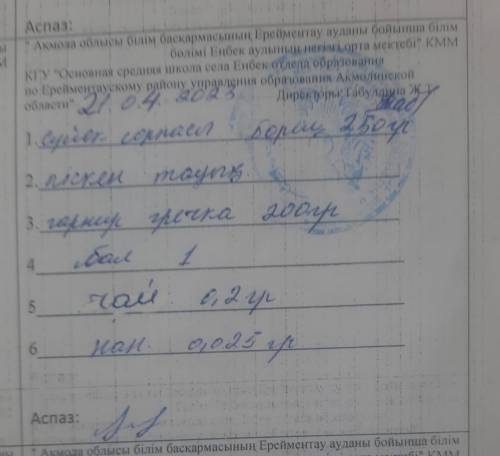 Аспаз:
" Ақмола облысы білім басқармасының Ерейментау ауданы бойынша білім
бөлімі Еңбек ауылының негізгі орта мектебі" КММ
КГУ "Основная средняя школа села Енбек отдела образования
по Ерейментаускому району управления образования Акмолинской
области" 21.04.2023 Директоры Габуллина Ж.
1. сүйек сорпасы борщ 250гр
2. піскен тауық.
3. гарнир гречка 200гр
4 бал 1
5 чай 0,2 гр
6 нан. 0,025 гр
Аспаз:
" Ақмола облысы білім басқармасының Ерейментау ауданы бойынша білім
мектебі" КММ